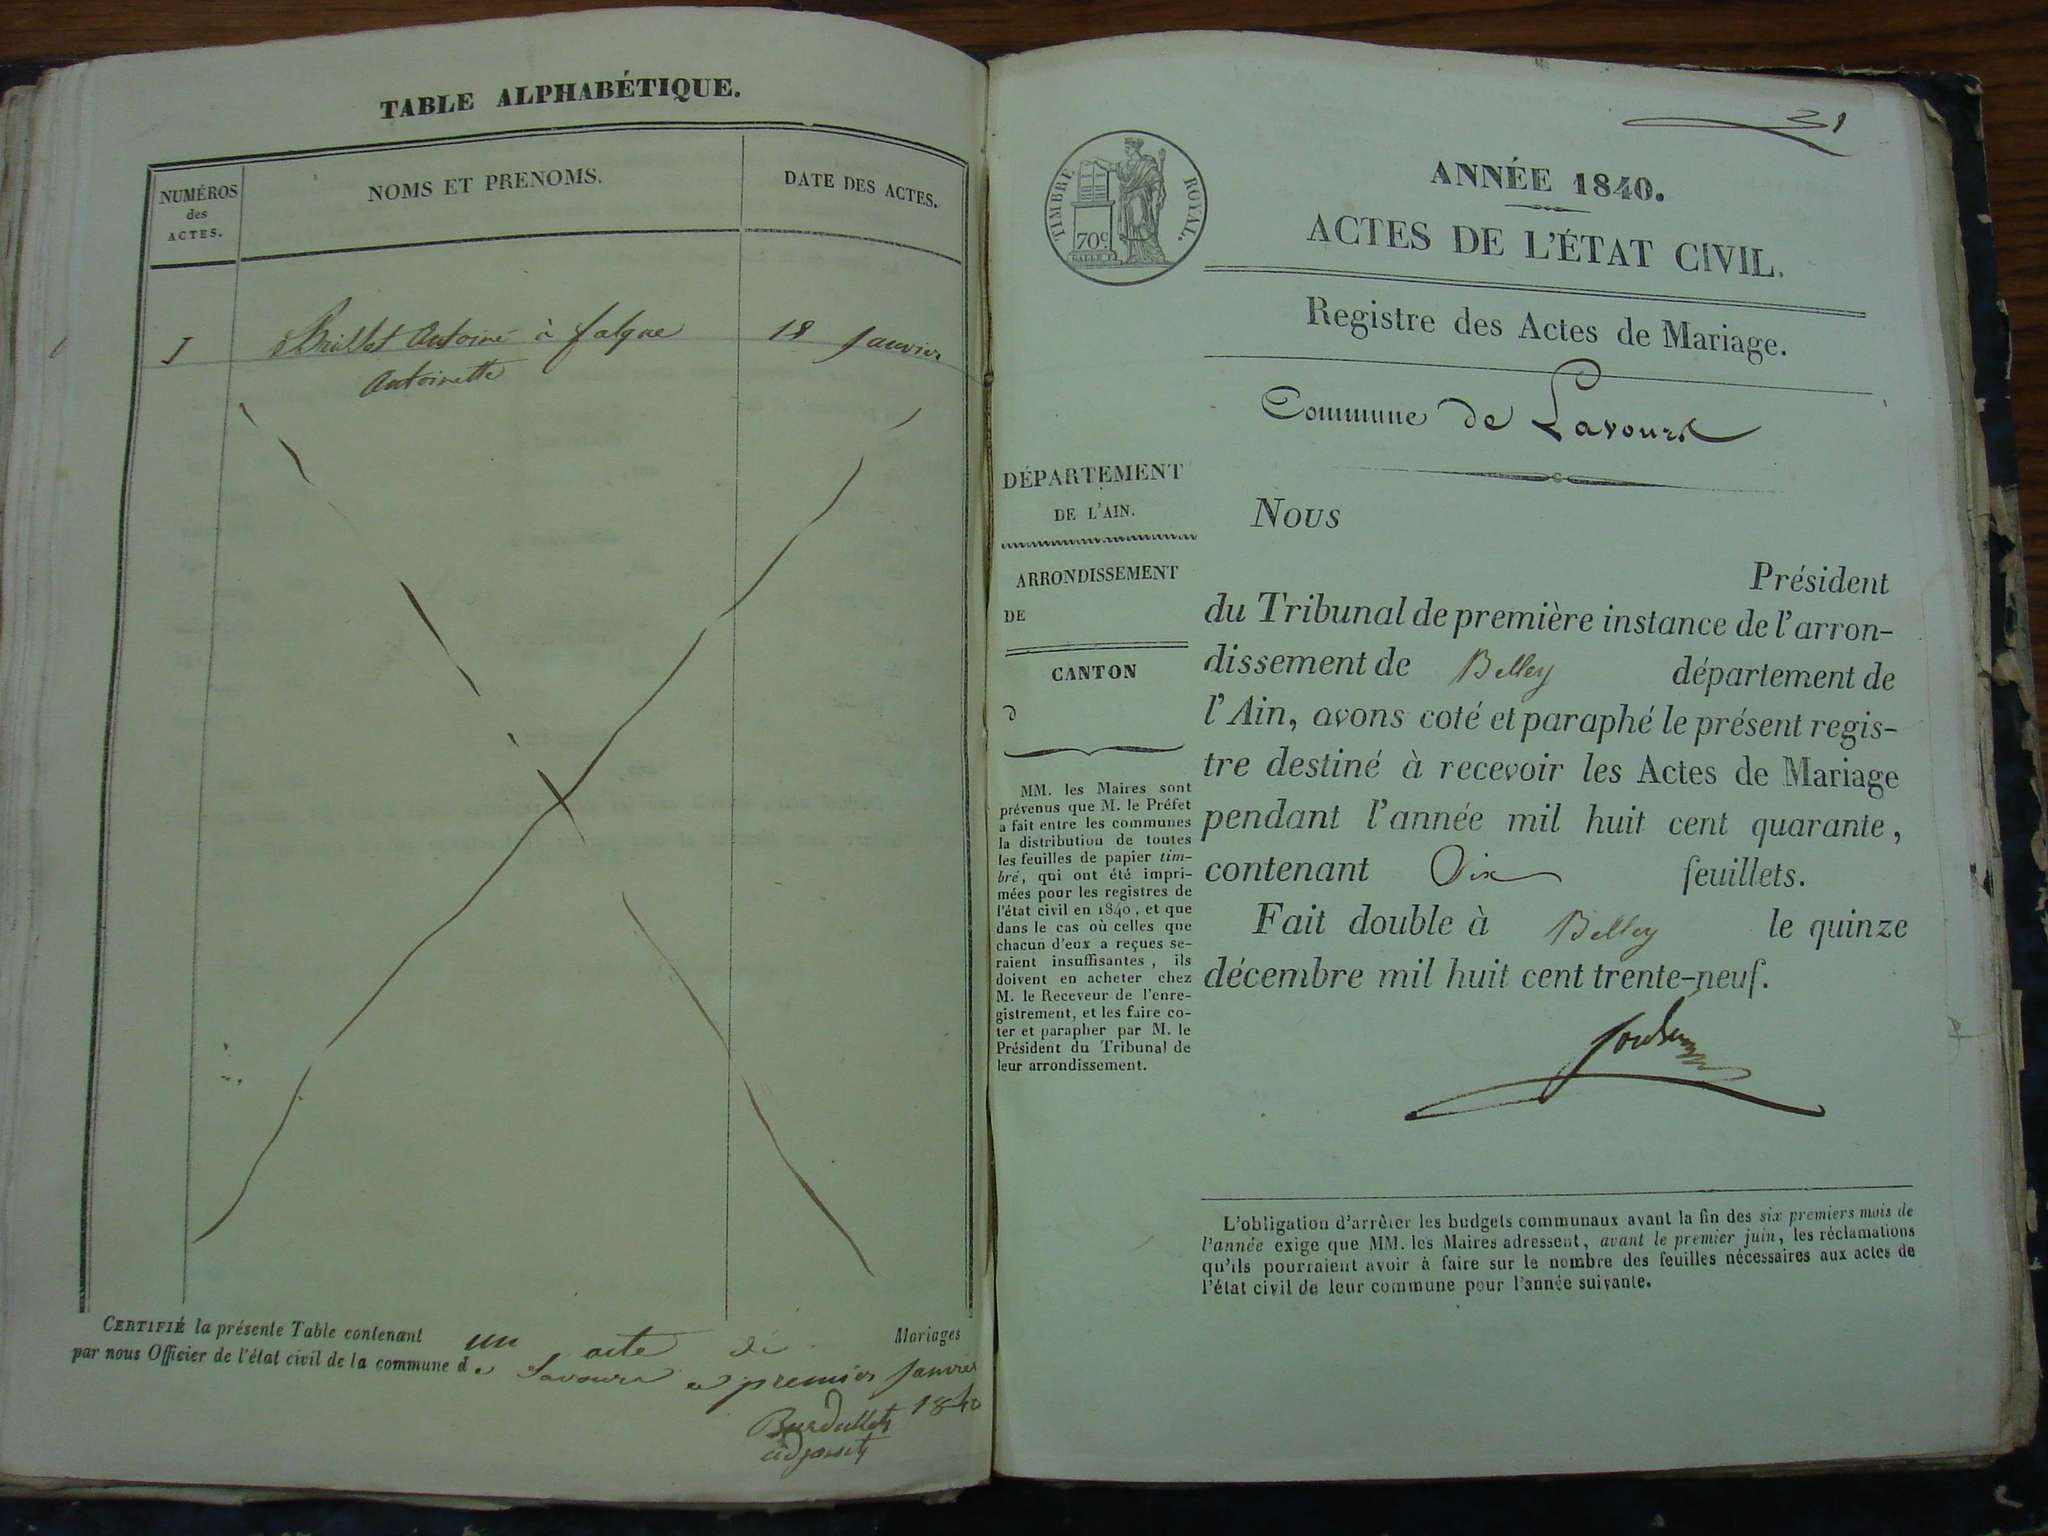 TABLE ALPHABÉTIQUE.
NUMÉROS
des
ACTES.
NOMS ET PRENOMS.
DATE DES ACTES.
1 Brillat Antoine à falque 18 Janvier
Antoinette
CERTIFIÉ la présente Table contenant un acte de Mariages
par nous Officier de l'état civil de la commune de Lavours le premier Janvier
1840
Burdallet
adjoint
31
TIMBRE ROYAL.
70c
ANNÉE 1840.
ACTES DE L'ÉTAT CIVIL.
Registre des Actes de Mariage.
Commune de Lavours
DÉPARTEMENT
DE L'AIN.
ARRONDISSEMENT
DE
CANTON
D
MM. les Maires sont
prévenus que M. le Préfet
a fait entre les communes
la distribution de toutes
les feuilles de papier tim-
bré, qui ont été impri-
mées pour les registres de
l'état civil en 1840, et que
dans le cas où celles que
chacun d'eux a reçues se-
raient insuffisantes, ils
doivent en acheter chez
M. le Receveur de l'enre-
gistrement, et les faire co-
ter et parapher par M. le
Président du Tribunal de
leur arrondissement.
Nous
Président
du Tribunal de première instance de l'arron-
dissement de Belley département de
l'Ain, avons coté et paraphé le présent regis-
tre destiné à recevoir les Actes de Mariage
pendant l'année mil huit cent quarante,
contenant Six feuillets.
Fait double à Belley le quinze
décembre mil huit cent trente-neuf.
L'obligation d'arrêter les budgets communaux avant la fin des six premiers mois de
l'année exige que MM. les Maires adressent, avant le premier juin, les réclamations
qu'ils pourraient avoir à faire sur le nombre des feuilles nécessaires aux actes de
l'état civil de leur commune pour l'année suivante.